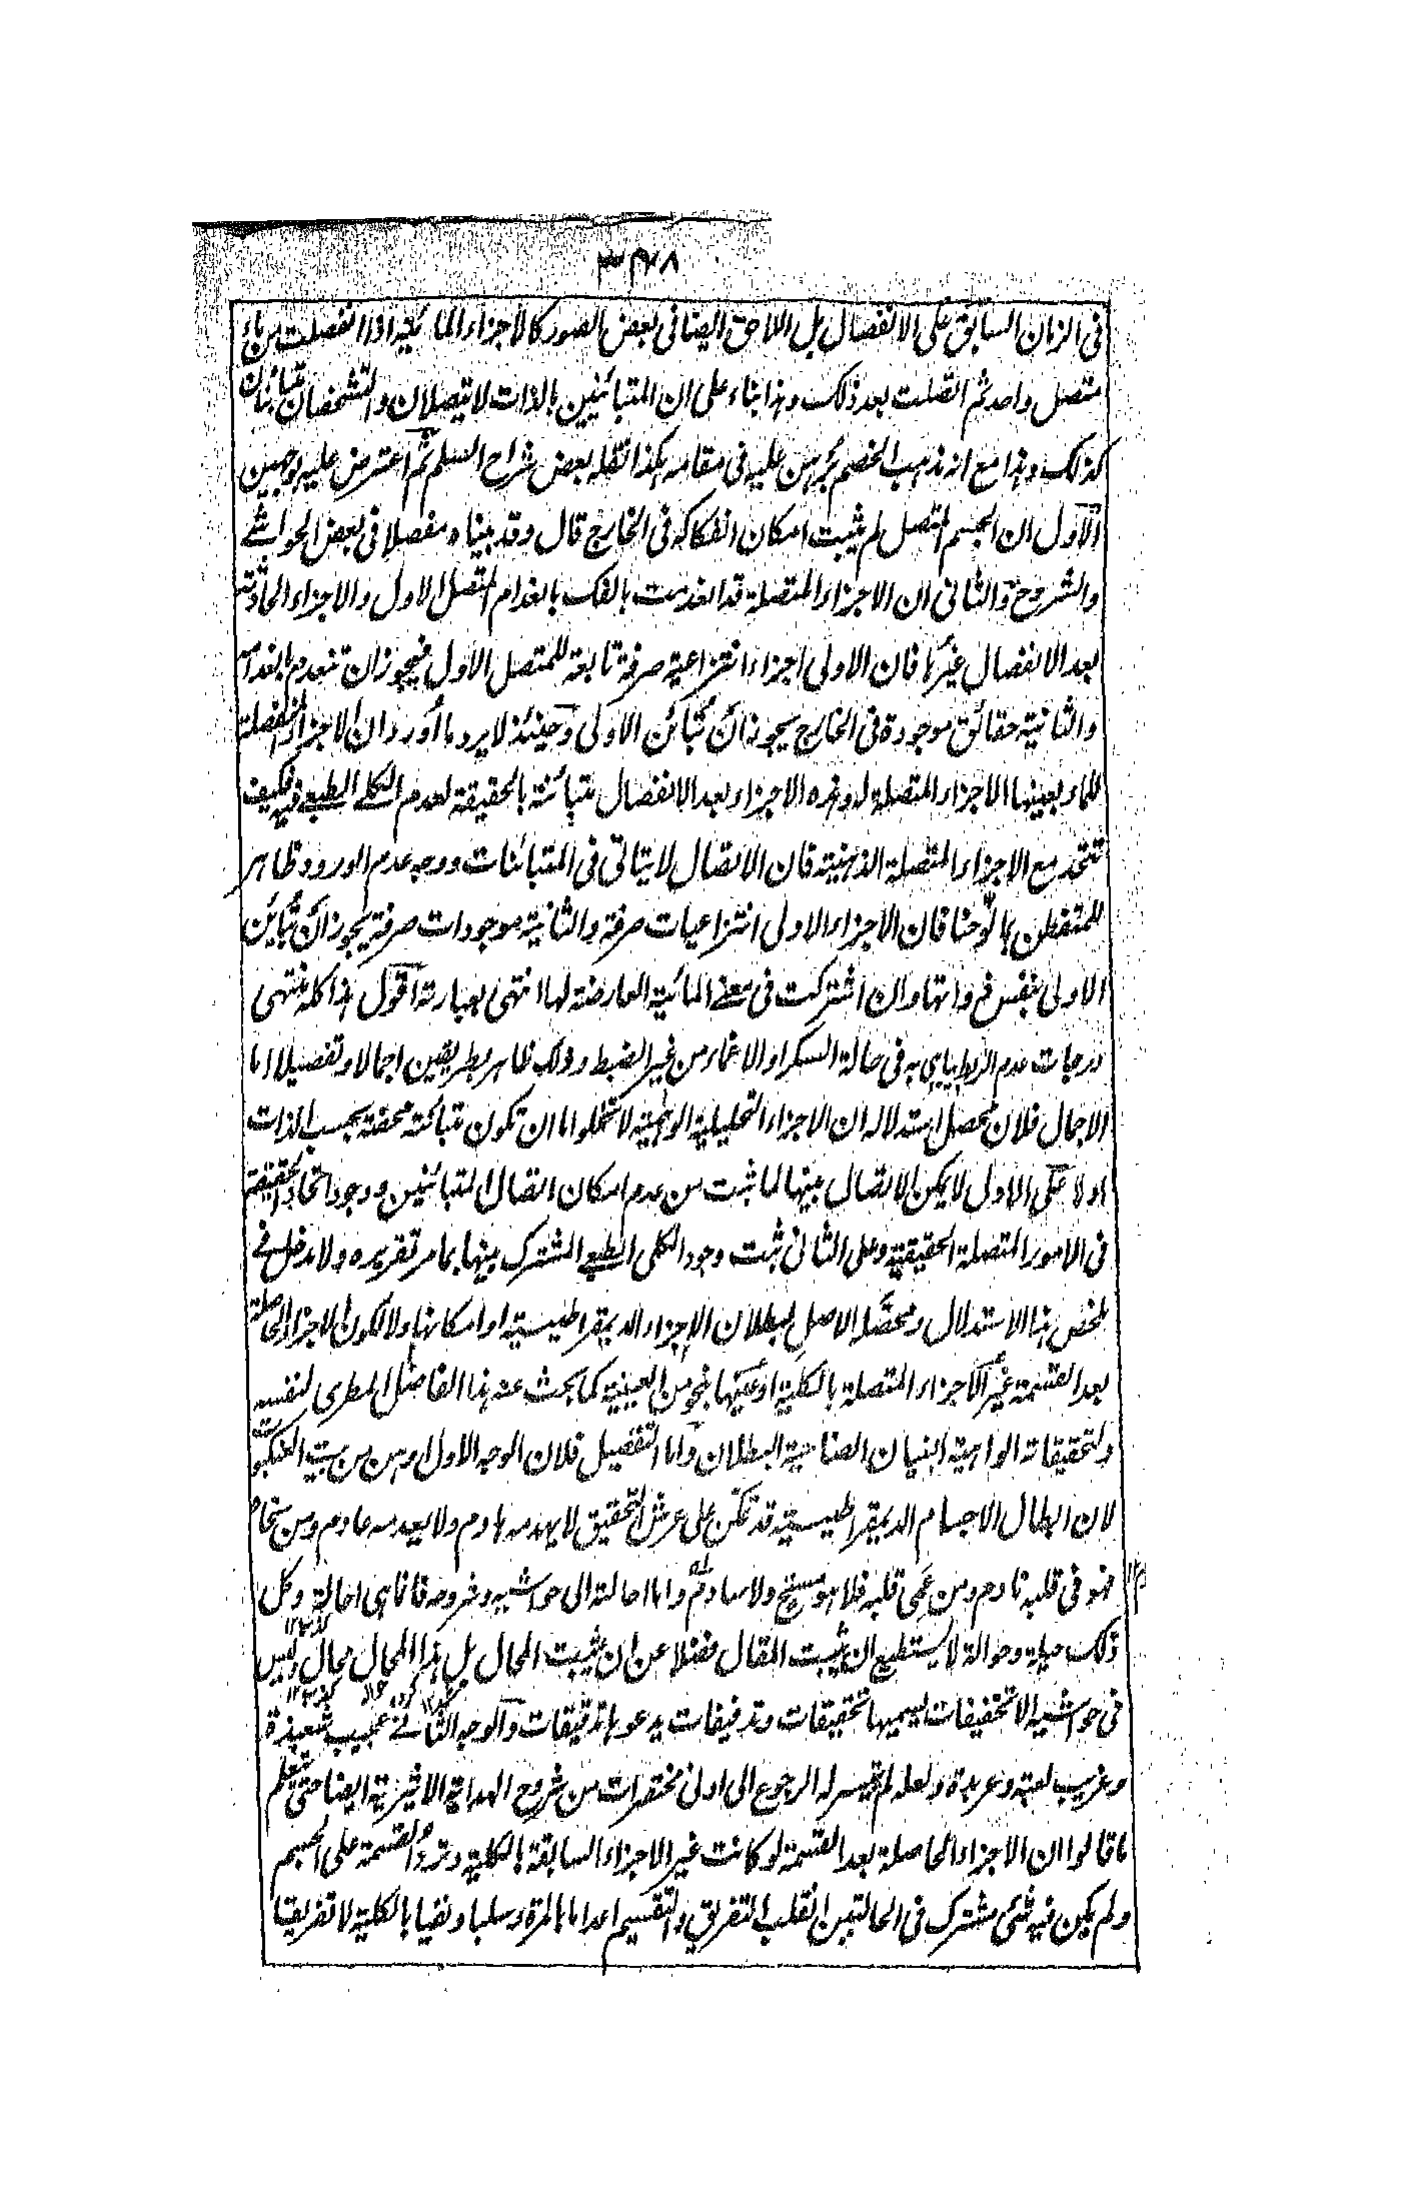 ٣٧٨
فى الزمان السابق على الانفصال بل اللاحق ايضا فى بعض الصور كالاجزاء المائية اذا انفصلت من ماء
متصل واحد ثم اتصلت بعد ذلك وهذا بناء على ان المتبائنين بالذات لا يتصلان والتشخصان متبائنان
كذلك وهذا مع انه مذهب الخصم مبرهن عليه فى مقامه هكذا نقله بعض شراح السلم ثم اعترض عليه بوجهين
الاول ان الجسم المتصل لم يثبت امكان انفكاكه فى الخارج قال وقد بيناه مفصلا فى بعض الحواشے
والشروح والثانى ان الاجزاء المتصلة قد انعدمت بالفك بانعدام المتصل الاول والاجزاء الحادثة
بعد الانفصال غيرها فان الاولى اجزاء انتزاعية صرفة تابعة للمتصل الاول فيجوز ان تنعدم بانعدامه
والثانية حقائق موجودة فى الخارج يجوز ان تبائن الاولى وحينئذ لا يرد ما أورد ان الاجزاء المنفصلة
للماء بعينها الاجزاء المتصلة له وهذه الاجزاء بعد الانفصال متبائنة بالحقيقة لعدم الكلے الطبعے فيه فكيف
تتحد مع الاجزاء المتصلة الذهنية فان الاتصال لا يتاتى فى المتبائنات ووجه عدم الورود ظاهر
للمتفطن بما لوحنا فان الاجزاء الاولى انتزاعيات صرفة والثانية موجودات صرفة يجوز ان تبائن
الاولى بنفس ذواتها وان اشتركت فى معنے المائية العارضة لها انتهى بعبارته اقول هذا كله منتهى
درجات عدم الربط يباهى به فى حالة السكر او الاغماء من غير الضبط وذلك ظاهر بطريقين اجمالا وتفصيلا اما
الاجمال فلان محصل استدلاله ان الاجزاء التحليلية الوهمية لا تخلو اما ان تكون متبائنة محضة بحسب الذات
او لا على الاول لا يمكن الاتصال بينها لما ثبت من عدم امكان اتصال المتبائنين ووجود اتحاد الحقيقة
فى الامور المتصلة الحقيقية وعلى الثانى ثبت وجود الكلى الطبعے المشترك بينها بما مر تقريره ولا مدخل فے
ملخص هذا الاستدلال ومحصله الاصل لبطلان الاجزاء الديمقراطيسية او امكانها ولا لكون الاجزاء الحاصلة
بعد القسمة غير الاجزاء المتصلة بالكلية او عينها بنحو من العينية كما بحث عنه هذا الفاضل المطرى لنفسه
ولتحقيقاته الواهية البنيان الصناعية البطلان واما التفصيل فلان الوجه الاول اوهن من بيت العنكبوت
لان ابطال الاجسام الديمقراطيسية قد تمكن على عرش التحقيق لا يهدمه هادم ولا يعدمه عادم ومن
فهو فى قلبه نادم ومن عمى قلبه فلا هو ولا سادم واما احالته الى حواشيه وشروحه فانما هى احالة وكل
ذلك حيلة وحوالة لا يستطيع ان يثبت المقال فضلا عن ان يثبت المحال بل هذا المحال محال وليس
فى حواشيه الا تخفيفات يسميها تحقيقات وتدفيفات يدعوها تدقيقات والوجه الثانے عجيب شعبذة
وغريب لعبة وعربدة ولعله لم يتيسر له الرجوع الى ادنى مختصرات من شروح الهداية الاثيرية ايضا حتى يعلم
ما قالوا ان الاجزاء الحاصلة بعد القسمة لو كانت غير الاجزاء السابقة بالكلية وترد القسمة على الجسم
ولم يكن فيه شئ مشترك فى الحالتين انقلب التفريق والتقسيم اعداما بالمرة وسلبا ونفيا بالكلية لا تفريقا